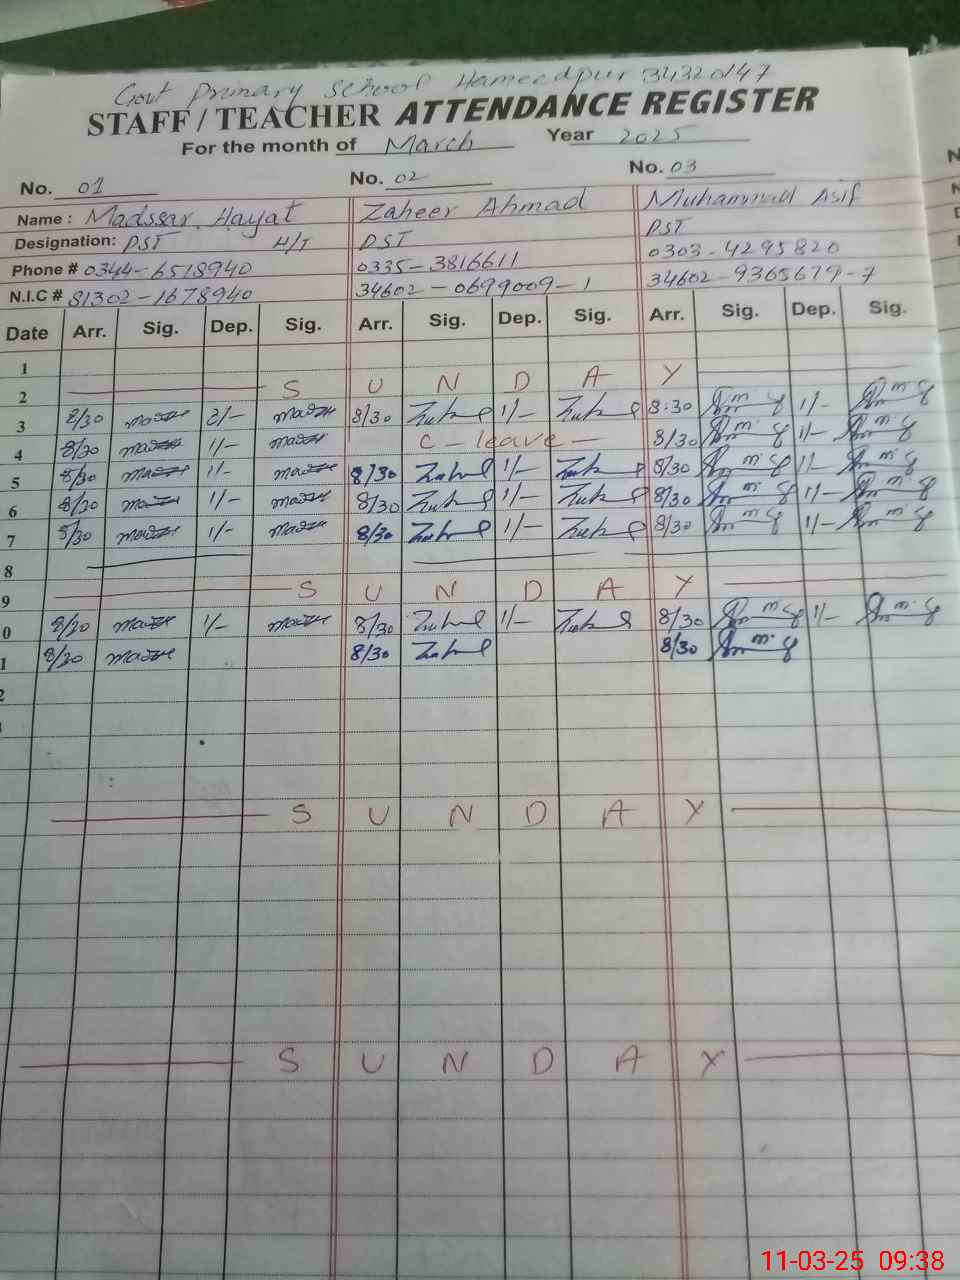 Govt Primary School Hameedpur 34320147
STAFF / TEACHER ATTENDANCE REGISTER
For the month of March Year 2025
No. 01 No. 02 No. 03
Name : Madssar Hayat Zaheer Ahmad Muhammad Asif
Designation: PST H/T PST PST
Phone # 0344-6518940 0335-3816611 0303-4295820
N.I.C # 81302-1678940 34602-0699009-1 34602-9365679-7
Date Arr. Sig. Dep. Sig. Arr. Sig. Dep. Sig. Arr. Sig. Dep. Sig.
1
2 S U N D A Y
3 8/30 2/- 8/30 1/- 8:30 1/-
4 8/30 1/- C-leave 8/30 1/-
5 8/30 1/- 8/30 1/- 8/30 1/-
6 8/30 1/- 8/30 1/- 8/30 1/-
7 8/30 1/- 8/30 1/- 8/30 1/-
8
9 S U N D A Y
0 8/30 1/- 8/30 1/- 8/30 1/-
1 8/30 8/30 8/30
2
S U N D A Y
S U N D A Y
11-03-25 09:38